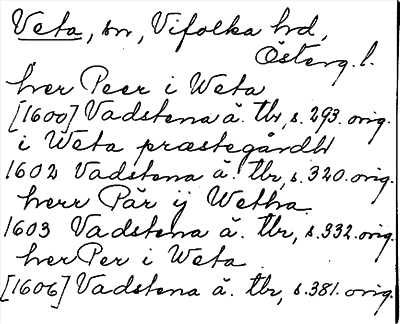 Veta, sn, Vifolka hd,
Österg. l.
her Peer i Weta
[1600] Vadstena ä. tbr, s. 293. orig.
i Weta præstegårdh
1602 Vadstena ä. tbr, s. 320. orig.
herr Pär ij Wetha
1603 Vadstena ä. tbr, s. 332. orig.
her Per i Weta
[1606] Vadstena ä. tbr, s. 381. orig.